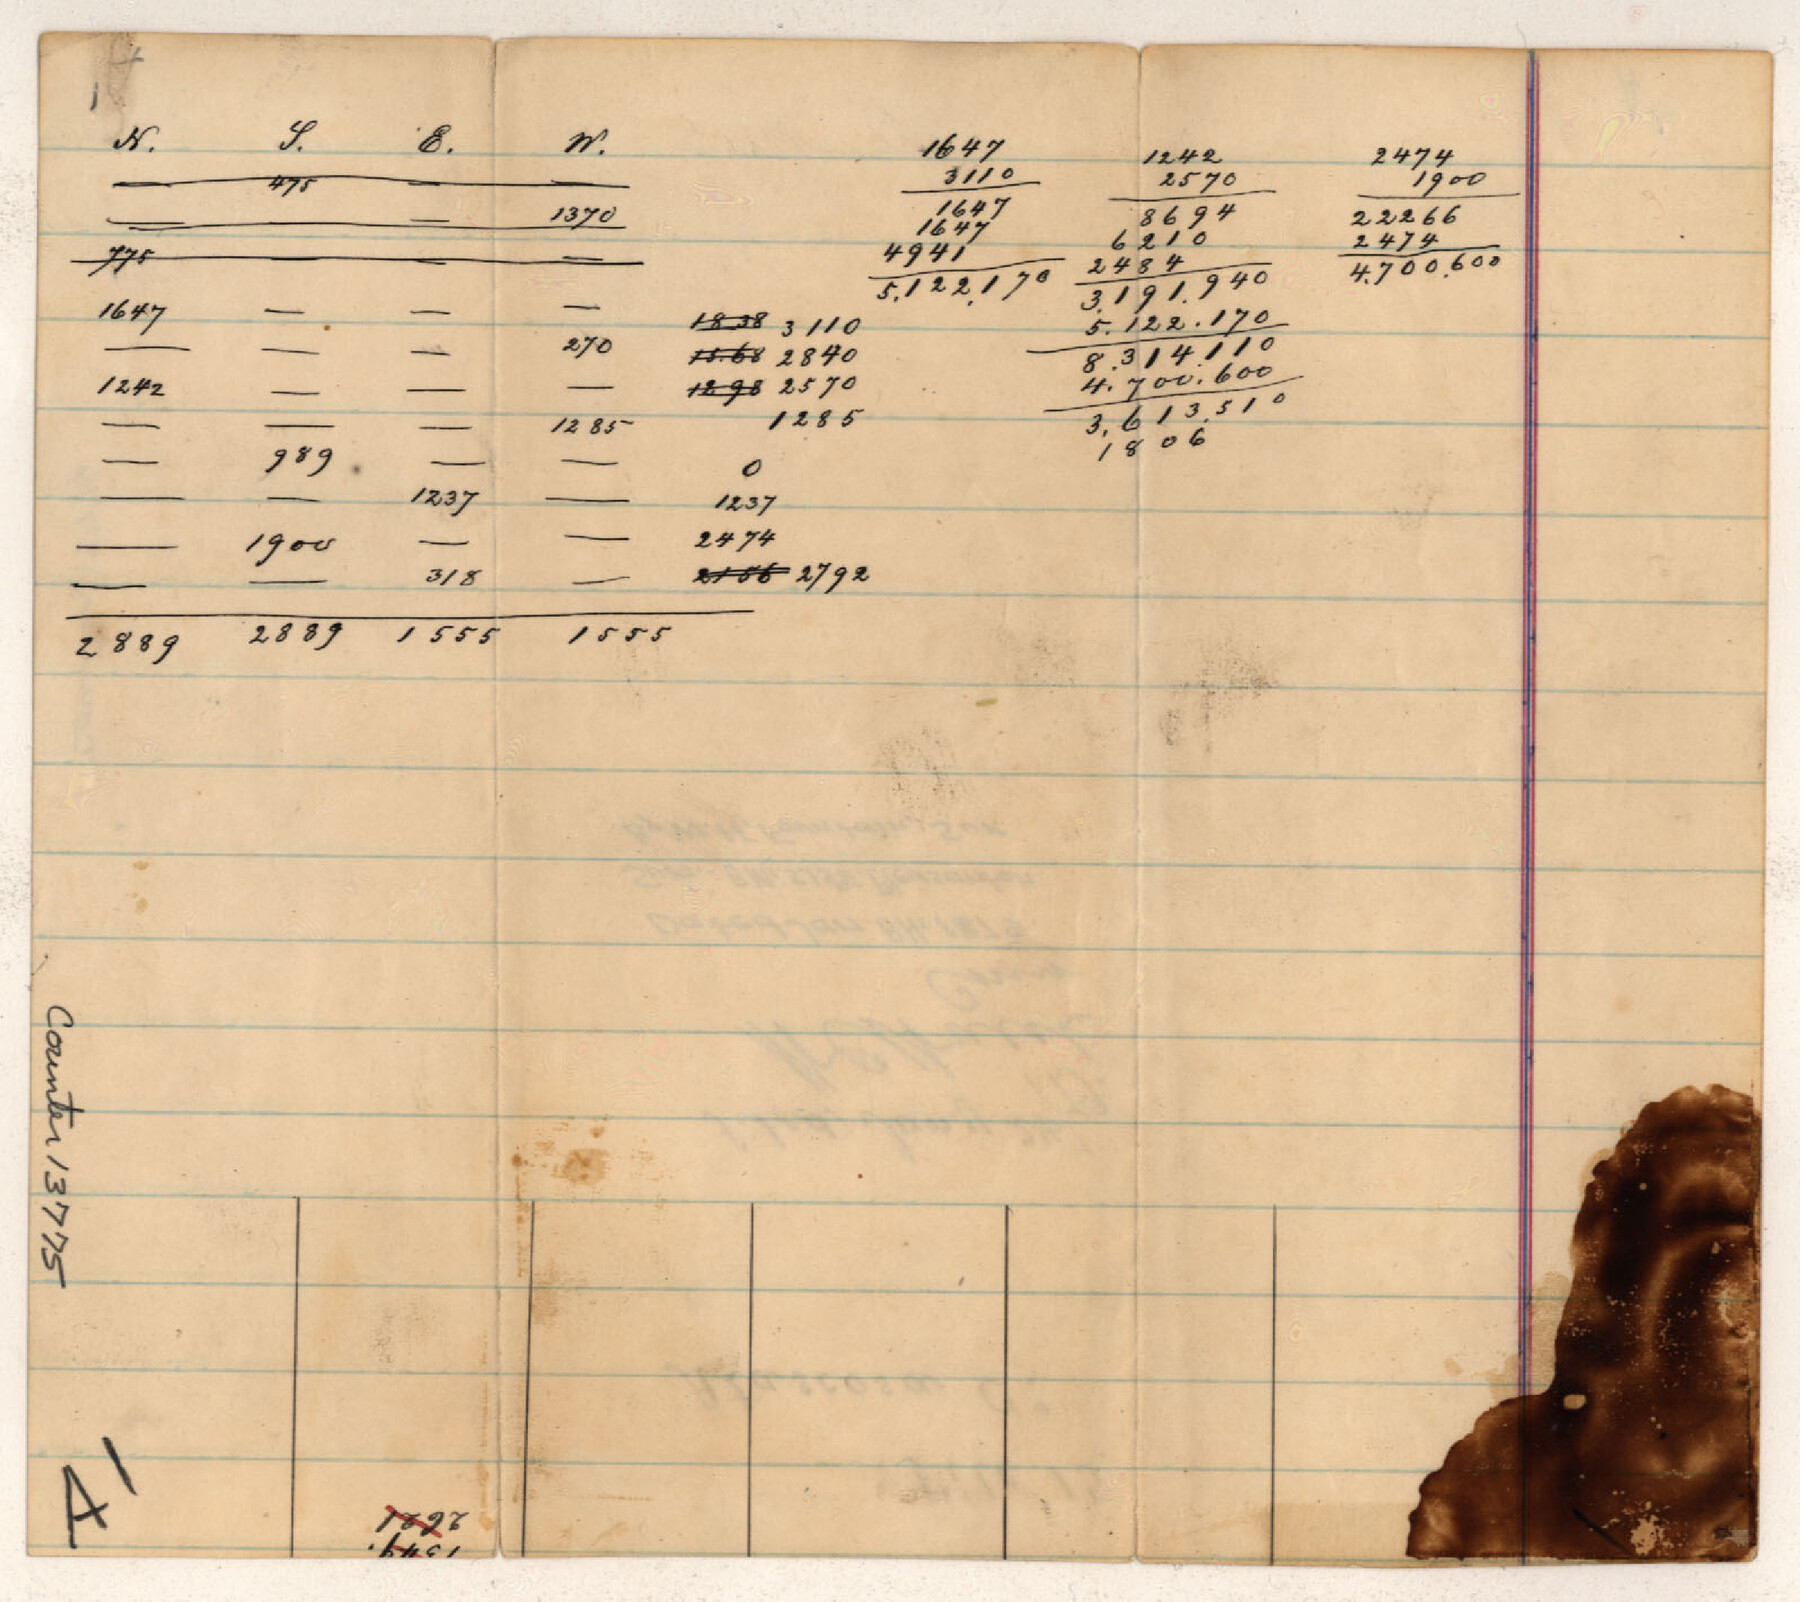 N. S. E. W.
— 475 — —
— — 1370
775 — —
1647 — — —
— — — 270 18 38 3110
1242 — — — 15.68 2840
— — — 1285 12 98 2570
— 989 — — 1285
— — 1237 — 0
— 1900 — — 1237
— — 318 — 2474
2156 2792
2889 2889 1555 1555
1647
3110
1647
1647
4941
5.122.170
1242
2570
8694
6210
2484
3.191.940
5.122.170
8.314.110
4.700.600
3.613.510
1806
2474
1900
22266
2474
4.700.600
Counter 13775
4
2621
1349.